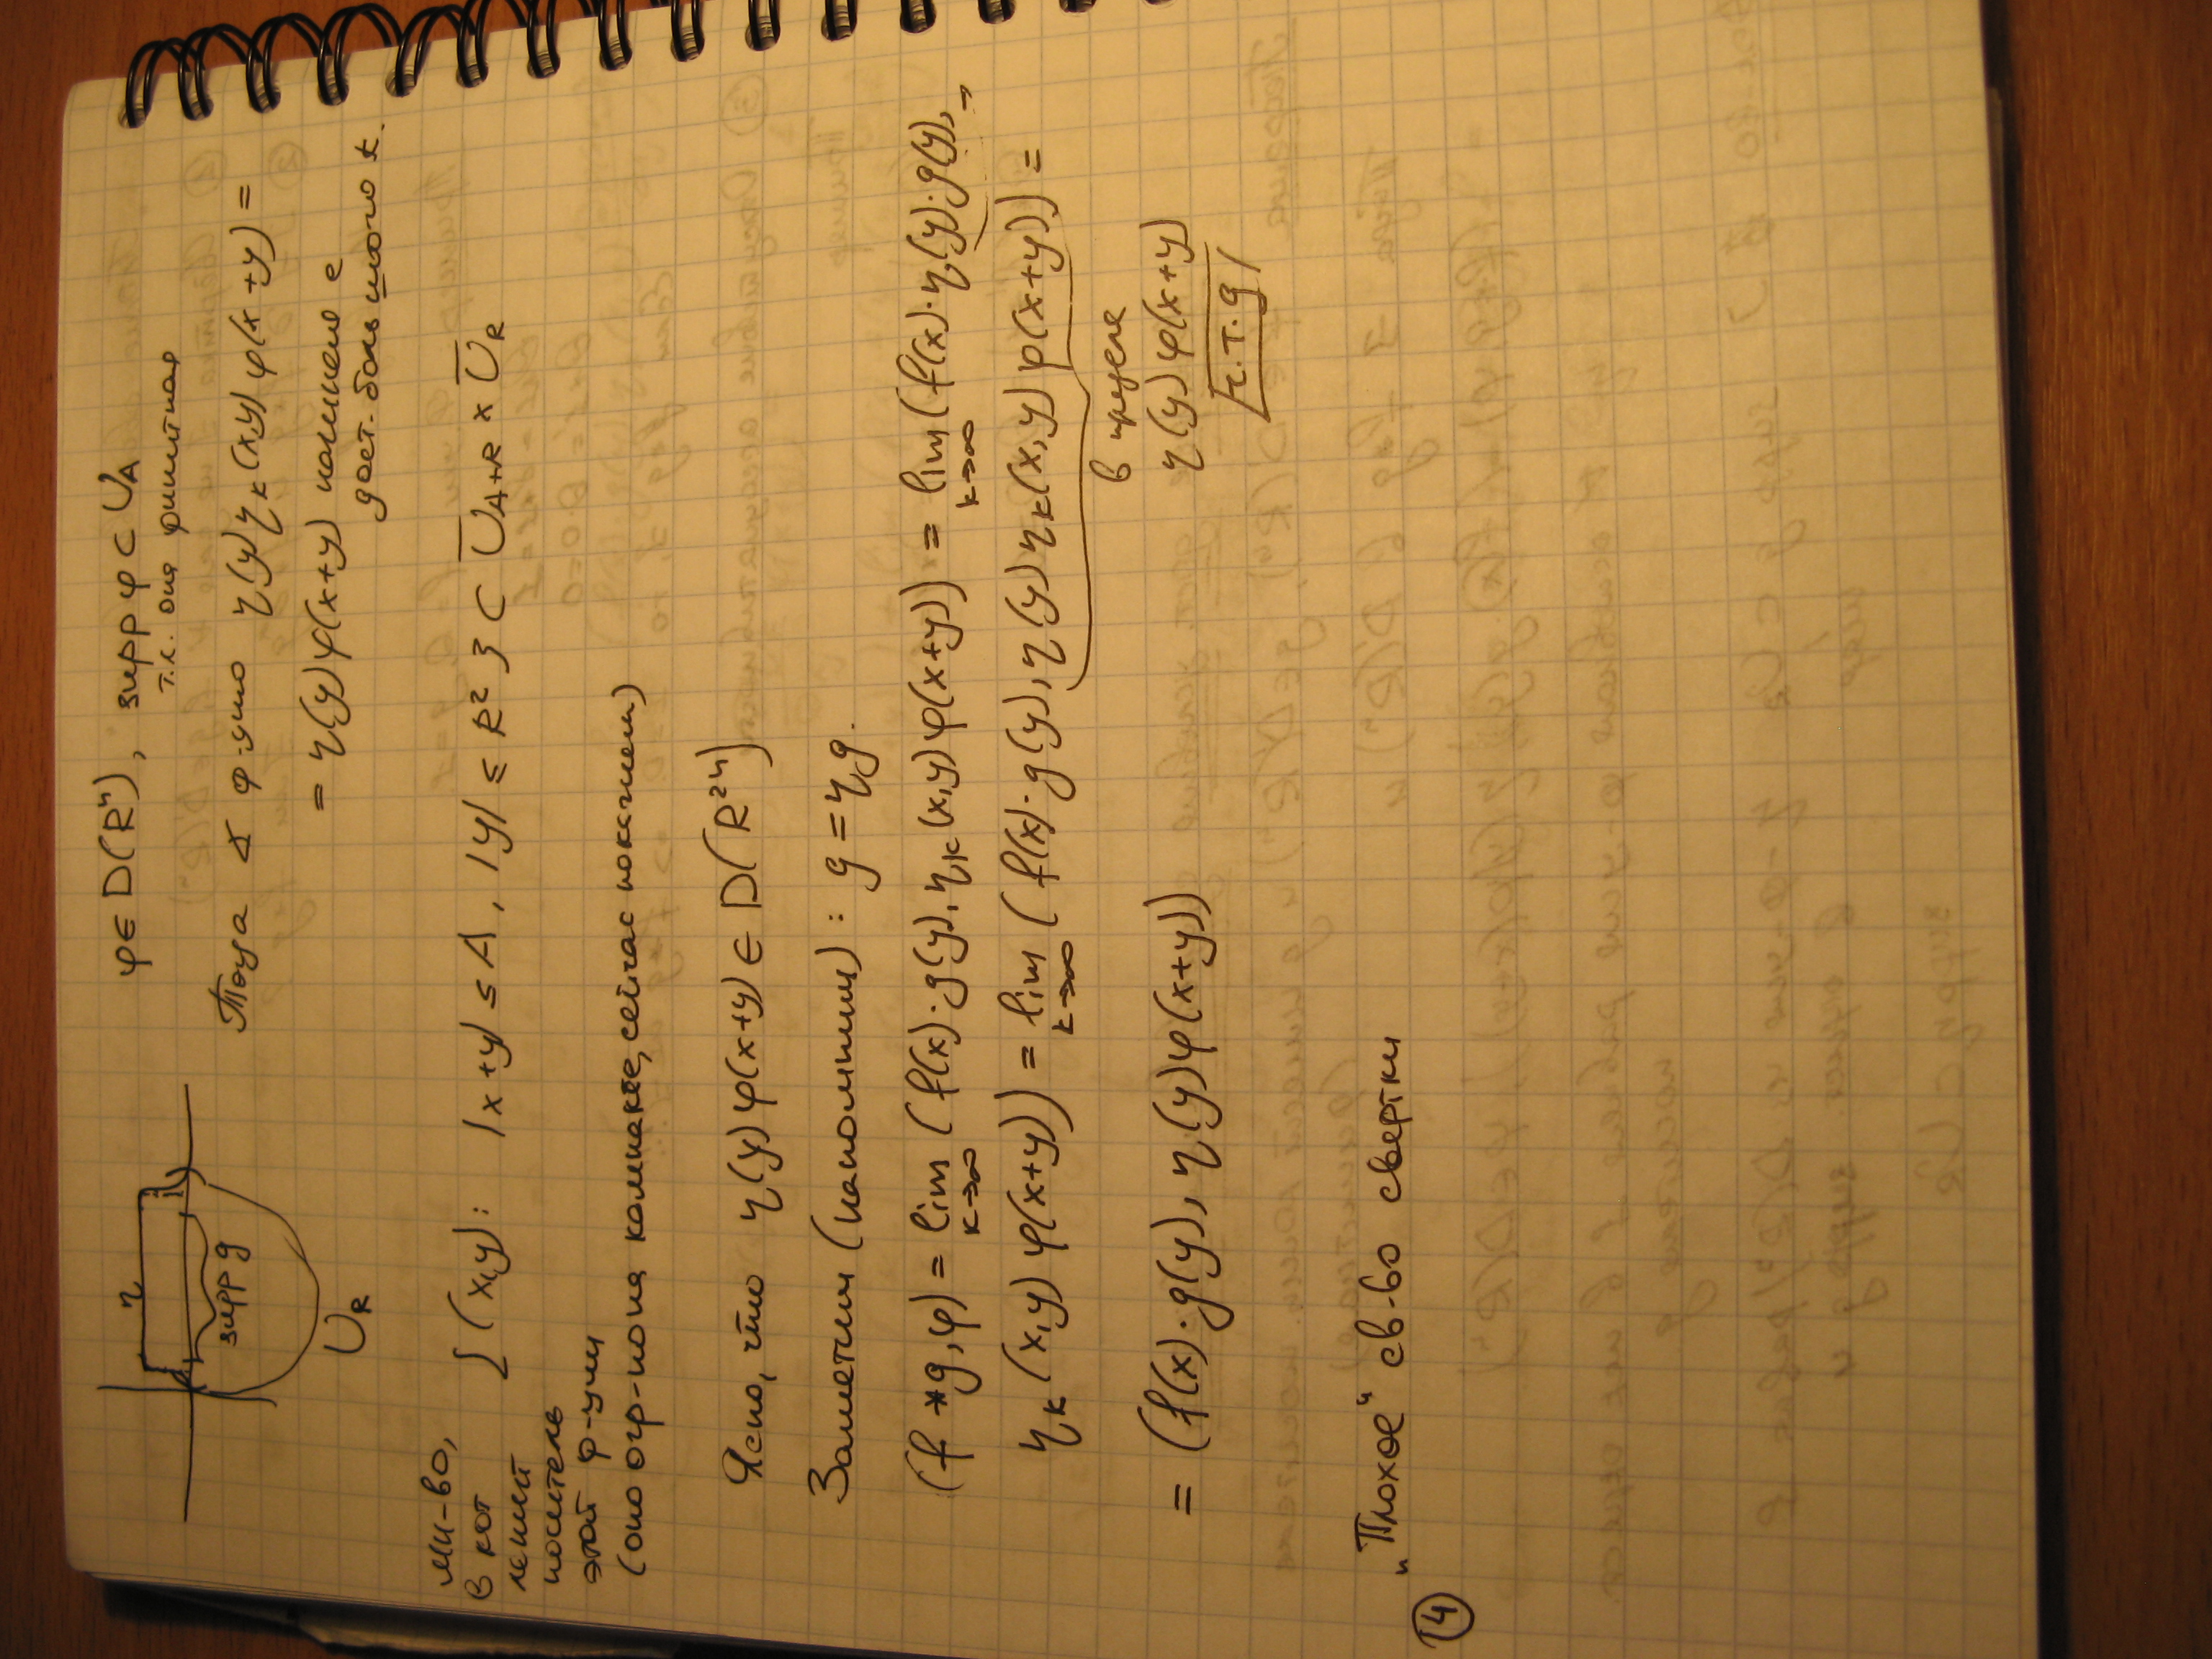 φ∈D(Rⁿ), supp φ ⊂ U_A
т.к. она финитная
η
supp g
U_R
Тогда ∢ ф-цию η(y)η_k(x,y)φ(x+y) =
= η(y)φ(x+y) начиная с
дост. большого k.
мн-во,
в кот
лежит
носитель
этой ф-ции
{(x,y): |x+y| ≤ A, |y| ≤ R²} ⊂ U̅_{A+R} × U̅_R
(оно огр-но на компакте, сейчас покажем)
Ясно, что η(y)φ(x+y) ∈ D(R²ⁿ)
Заметим (напомним): g = ηg.
(f*g,φ) = lim_{k→∞} (f(x)·g(y), η_k(x,y)φ(x+y)) = lim_{k→∞} (f(x)·η(y)·g(y),
η_k(x,y)φ(x+y)) = lim_{k→∞} (f(x)·g(y), η(y)η_k(x,y)φ(x+y)) =
в пределе
η(y)φ(x+y)
= (f(x)·g(y), η(y)φ(x+y))
ч.т.д
14 „Плохое" св-во свертки